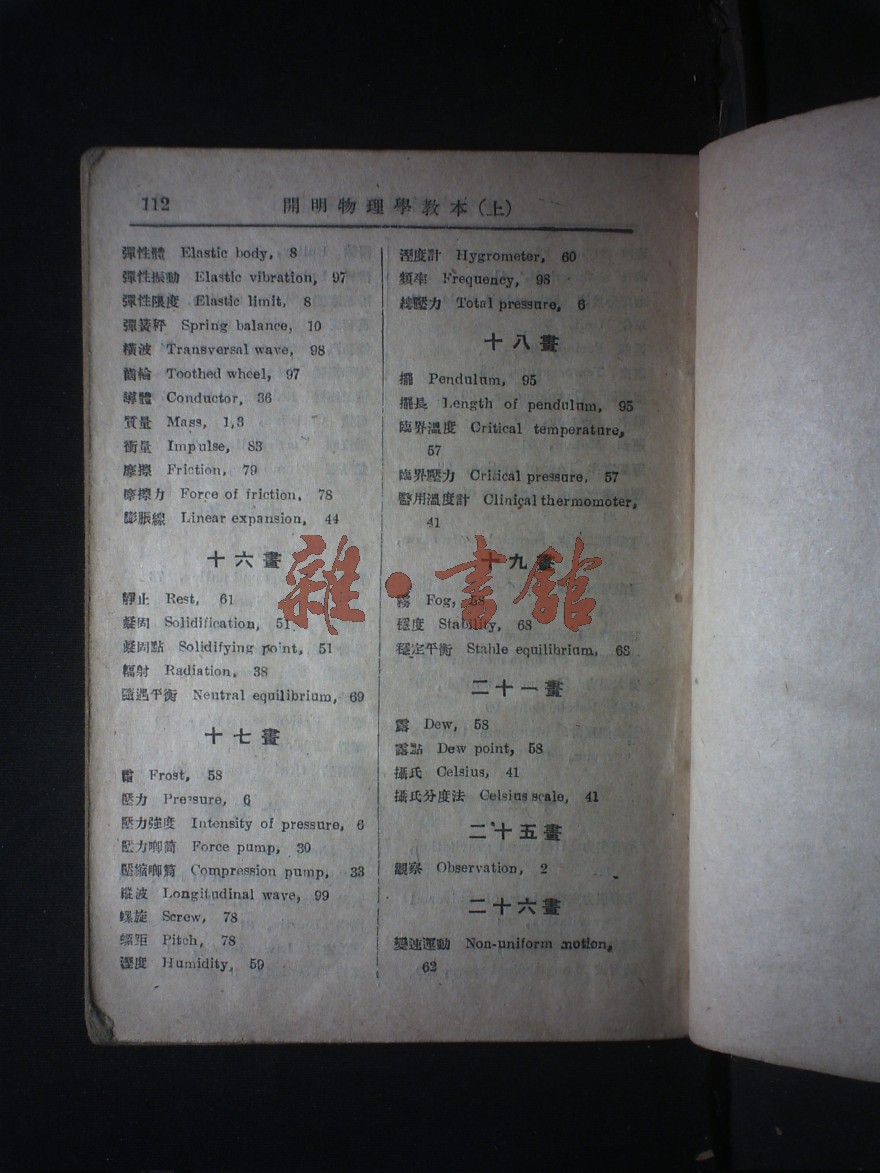 112
開明物理學教本(上)
彈性體 Elastic body, 8
彈性振動 Elastic vibration, 97
彈性限度 Elastic limit, 8
彈簧秤 Spring balance, 10
橫波 Transversal wave, 98
齒輪 Toothed wheel, 97
導體 Conductor, 36
質量 Mass, 1,3
衝量 Impulse, 83
摩擦 Friction, 79
摩擦力 Force of friction, 78
膨脹線 Linear expansion, 44
十六畫
靜止 Rest, 61
凝固 Solidification, 51
凝固點 Solidifying point, 51
輻射 Radiation, 38
隨遇平衡 Neutral equilibrium, 69
十七畫
霜 Frost, 58
壓力 Pressure, 6
壓力強度 Intensity of pressure, 6
壓力唧筒 Force pump, 30
壓縮唧筒 Compression pump, 33
縱波 Longitudinal wave, 99
螺旋 Screw, 78
螺距 Pitch, 78
溼度 Humidity, 59
溼度計 Hygrometer, 60
頻率 Frequency, 98
總壓力 Total pressure, 6
十八畫
擺 Pendulum, 95
擺長 Length of pendulum, 95
臨界溫度 Critical temperature,
57
臨界壓力 Critical pressure, 57
醫用溫度計 Clinical thermomoter,
41
十九畫
霧 Fog, 58
穩度 Stability, 68
穩定平衡 Stable equilibrium, 68
二十一畫
露 Dew, 58
露點 Dew point, 58
攝氏 Celsius, 41
攝氏分度法 Celsius scale, 41
二十五畫
觀察 Observation, 2
二十六畫
變速運動 Non-uniform motion,
62
雜·書館